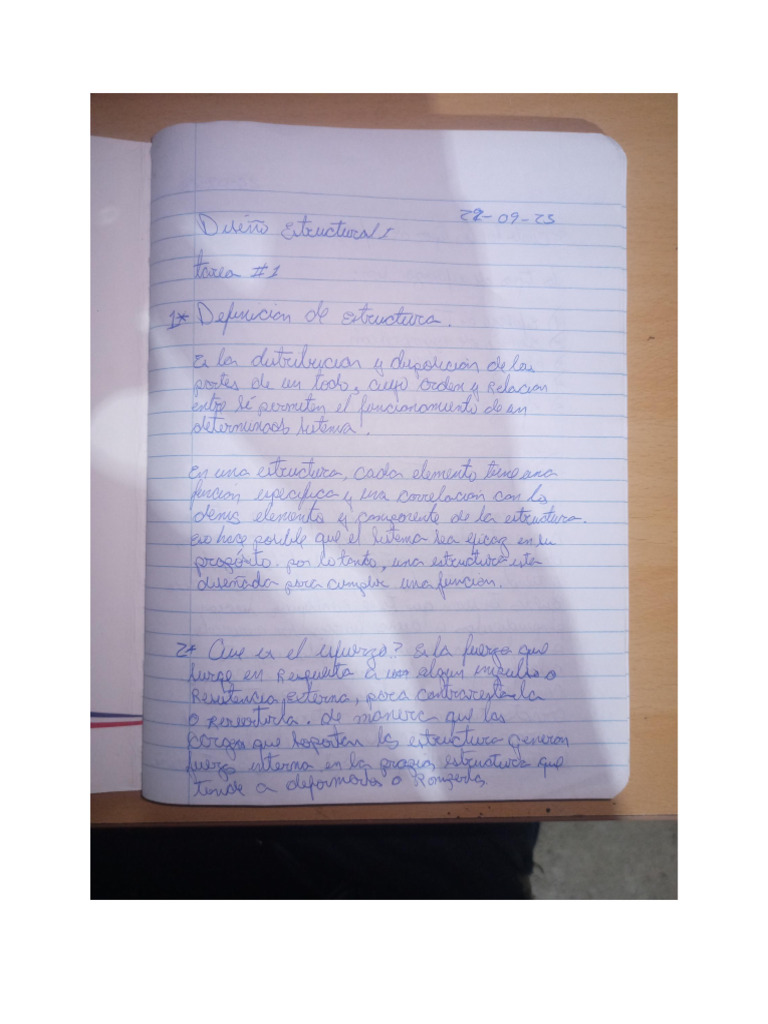 29-09-25
Diseño Estructural
tarea #1
1* Definición de estructura.
Es la distribución y disposición de las
partes de un todo, cuyo orden y Relación
entre sí permiten el funcionamiento de un
determinados sistema.
En una estructura, cada elemento tiene una
función especifica y una correlación con los
demás elemento y componente de la estructura.
Eso hace posible que el sistema sea eficaz en su
propósito. por lo tanto, una estructura esta
diseñada para cumplir una función.
2* Que es el esfuerzo? Es la fuerza que
surge en Respuesta a algun impulso o
Resistencia, Externa, para contrarestarla
o . de manera que las
cargas que soportan la estructura generan
fuerza interna en la propia estructura que
tiende a deformarlas o Romperlas.